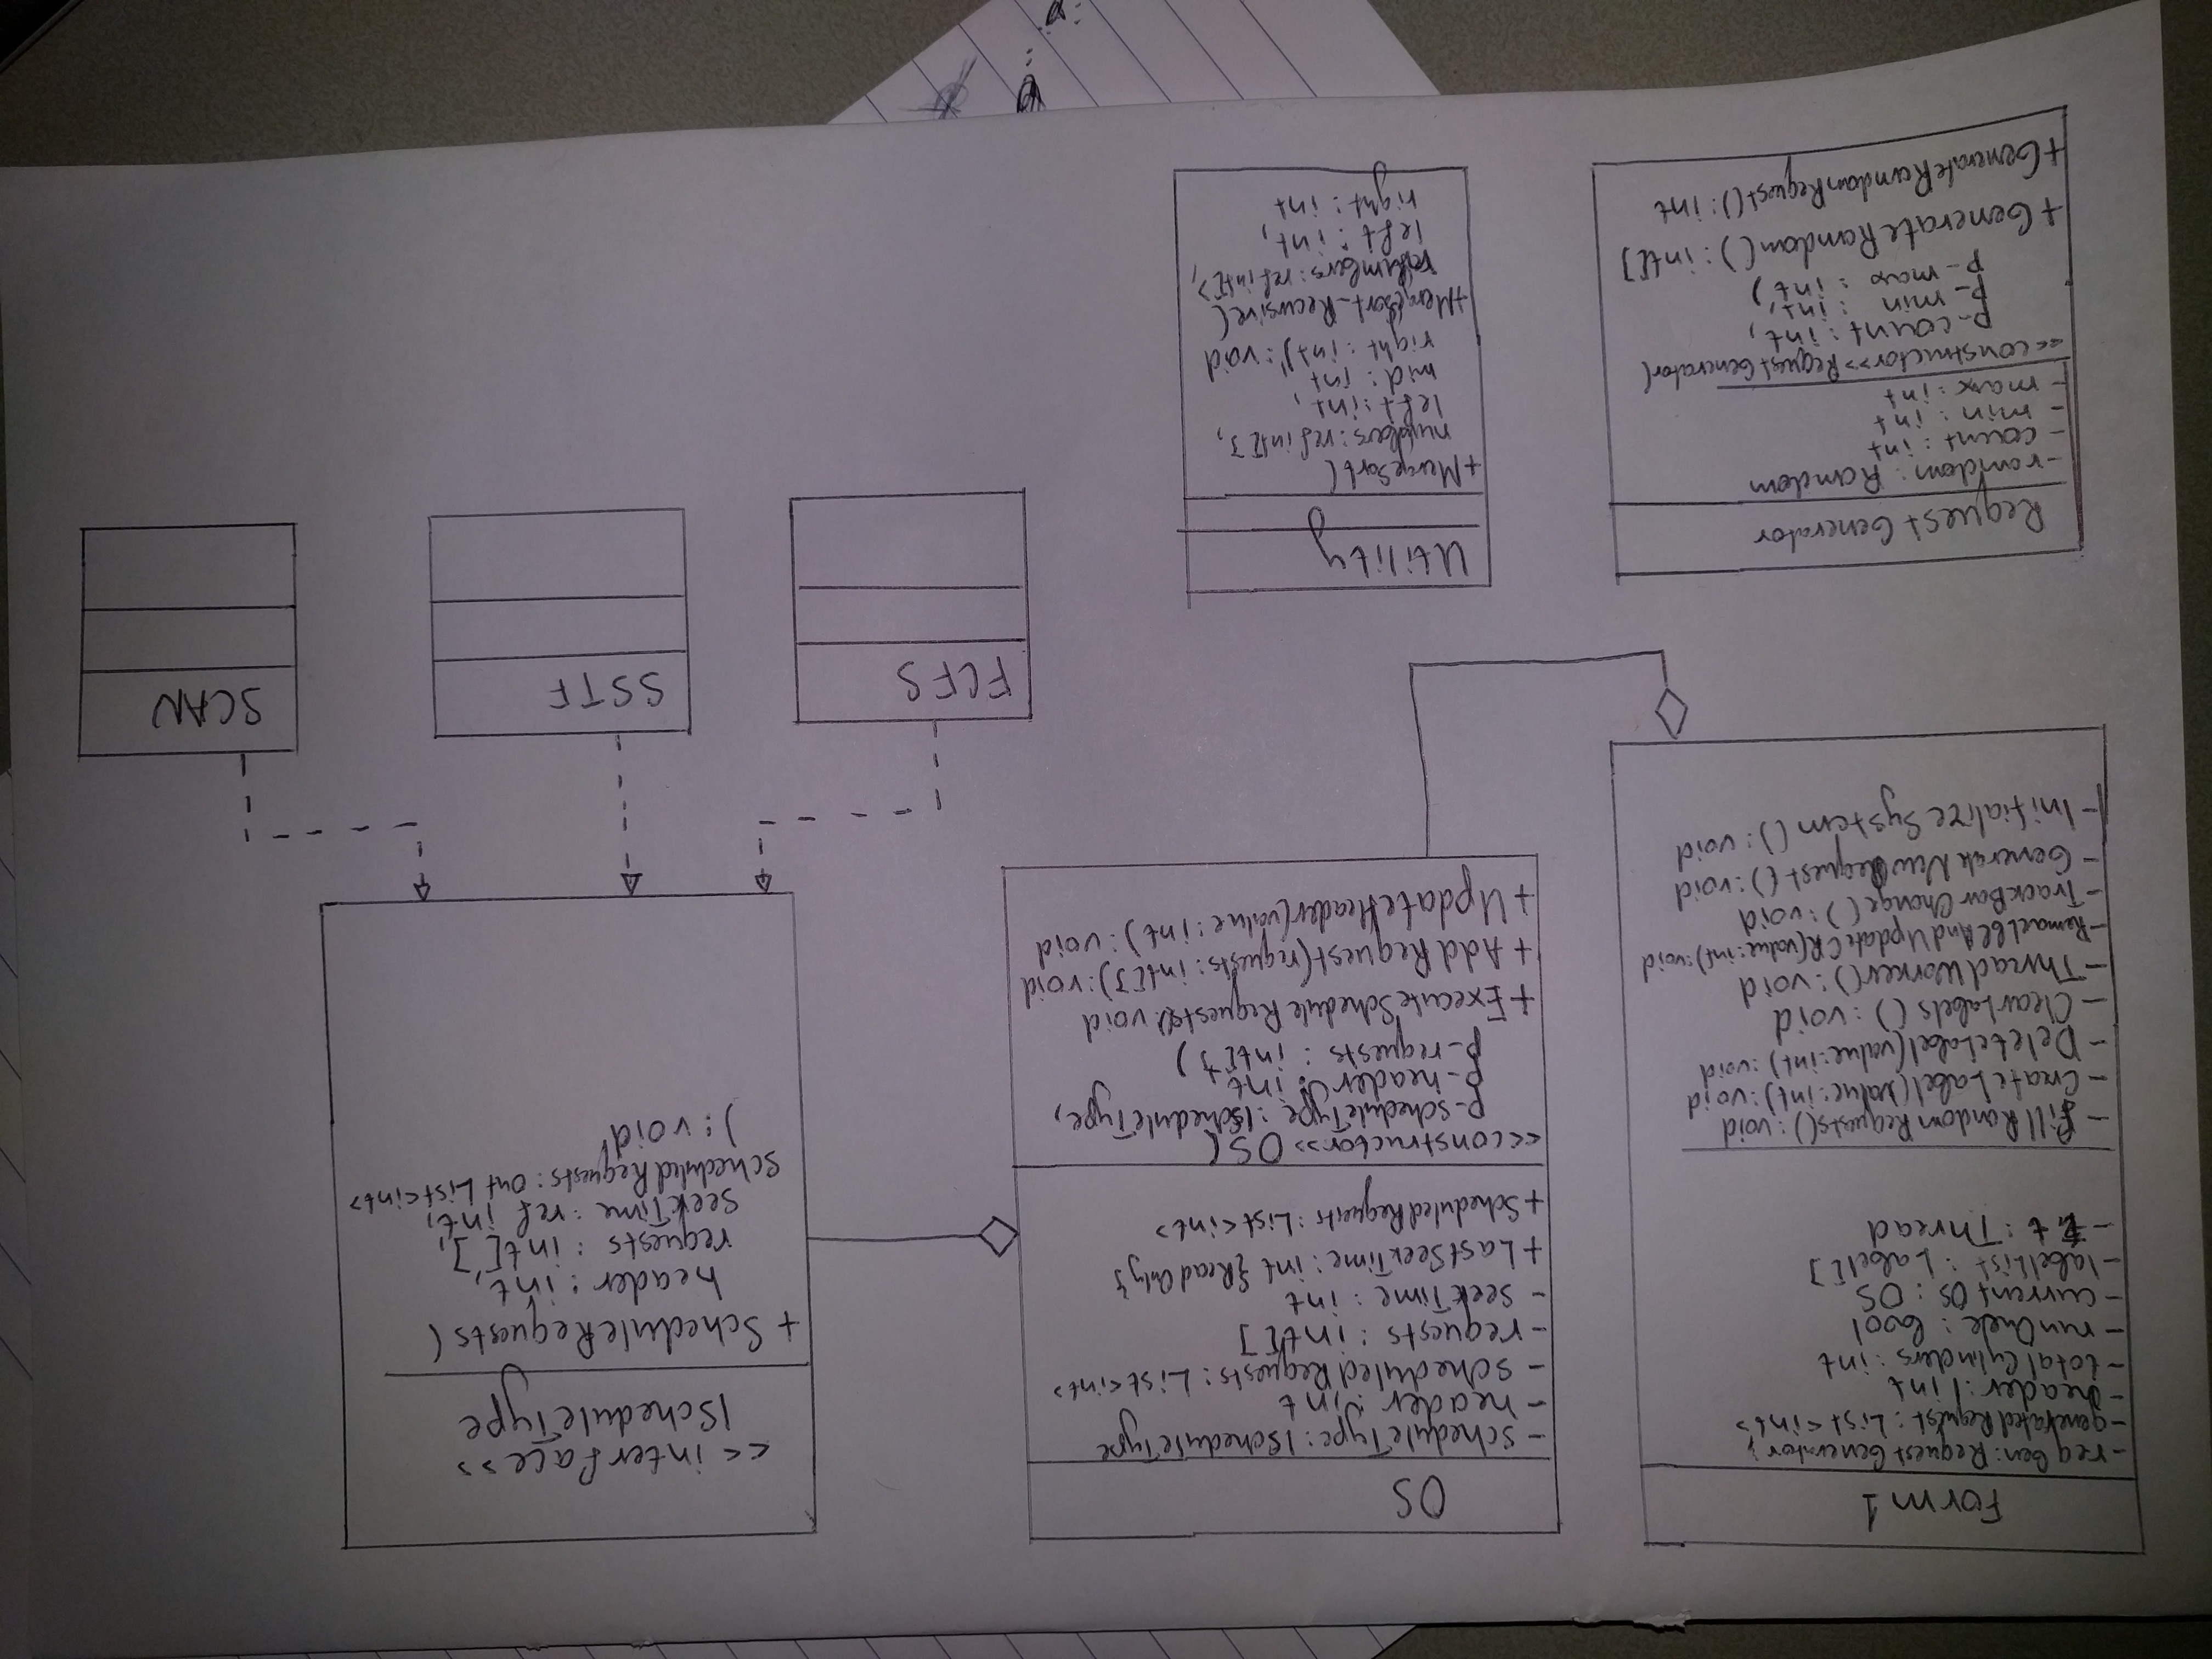 Form1
- reqGen: RequestGenerator;
- generatedRequest: List<int>
- header: int
- totalCylinders: int
- runOnce: bool
- currentOS: OS
- labelList: Label[]
- t: Thread
- fillRandomRequests(): void
- CreateLabel(value: int): void
- DeleteLabel(value: int): void
- ClearLabels(): void
- ThreadWorker(): void
- RemoveLBLAndUpdateCR(value: int): void
- TrackBarChange(): void
- GenerateNewRequest(): void
- InitializeSystem(): void
OS
- scheduleType: IScheduleType
- header: int
- scheduledRequests: List<int>
- requests: int[]
- seekTime: int
+ LastSeekTime: int {Read Only}
+ ScheduledRequests: List<int>
<<constructor>> OS(
p_scheduleType: IScheduleType,
p_header: int,
p_requests: int[])
+ ExecuteScheduleRequests(): void
+ AddRequest(requests: int[]): void
+ UpdateHeader(value: int): void
<<interface>>
IScheduleType
+ ScheduleRequests(
header: int,
requests: int[],
seekTime: ref int,
scheduledRequests: out List<int>
): void
FCFS
SSTF
SCAN
RequestGenerator
- random: Random
- count: int
- min: int
- max: int
<<constructor>> RequestGenerator(
p_count: int,
p_min: int,
p_max: int)
+ GenerateRandom(): int[]
+ GenerateRandomRequest(): int
Utility
+ MergeSort(
numbers: ref int[],
left: int,
mid: int,
right: int): void
+ MergeSort_Recursive(
numbers: ref int[],
left: int,
right: int